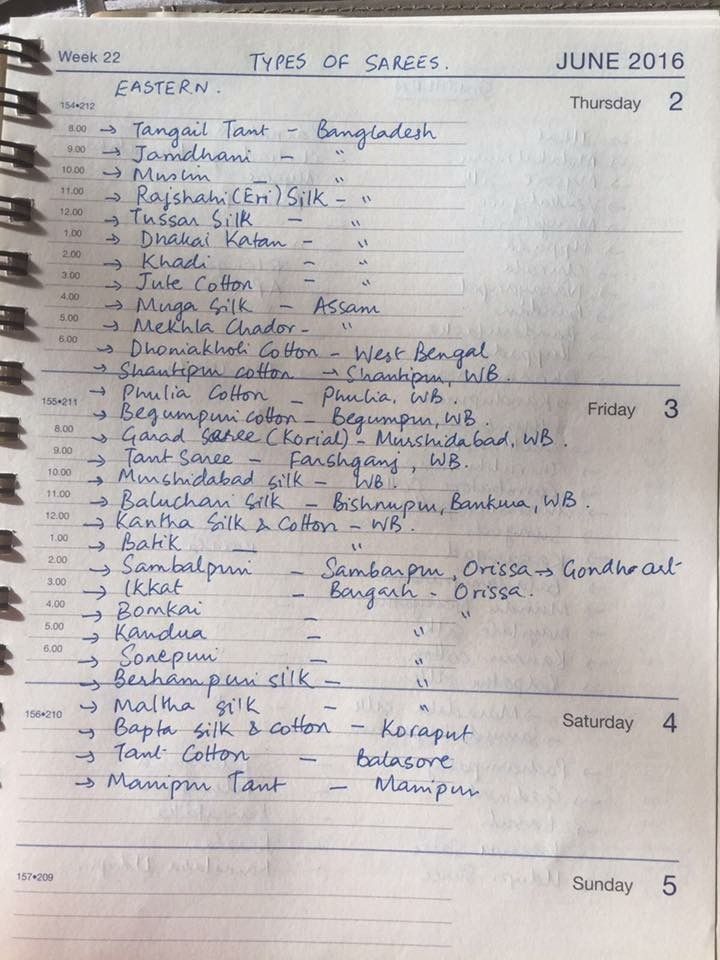 Week 22 TYPES OF SAREES. JUNE 2016
EASTERN.
154•212 Thursday 2
8.00 → Tangail Tant - Bangladesh
9.00 → Jamdhani - "
10.00 → Muslin - "
11.00 → Rajshahi (Eri) Silk - "
12.00 → Tussar Silk - "
1.00 → Dhakai Katan - "
2.00 → Khadi - "
3.00 → Jute Cotton - "
4.00 → Muga Silk - Assam
5.00 → Mekhla Chador - "
6.00 → Dhoniakholi Cotton - West Bengal
→ Shantipur cotton → Shantipur, WB.
→ Phulia Cotton - Phulia, WB.
155•211 Friday 3
→ Begumpuri cotton - Begumpur, WB.
8.00 → Garad saree (Korial) - Murshidabad, WB.
9.00 → Tant Saree - Farshganj, WB.
10.00 → Murshidabad silk - WB.
11.00 → Baluchari Silk - Bishnupur, Bankura, WB.
12.00 → Kantha Silk & Cotton - WB.
1.00 → Batik - "
2.00 → Sambalpuri - Sambarpur, Orissa → Gondho art
3.00 → Ikkat - Bargarh - Orissa.
4.00 → Bomkai - "
5.00 → Kandua - "
6.00 → Sonepuri - "
→ Berhampuri silk - "
→ Maltha silk - "
156•210 Saturday 4
→ Bapta silk & cotton - Koraput
→ Tant Cotton - Balasore
→ Manipur Tant - Manipur
157•209 Sunday 5